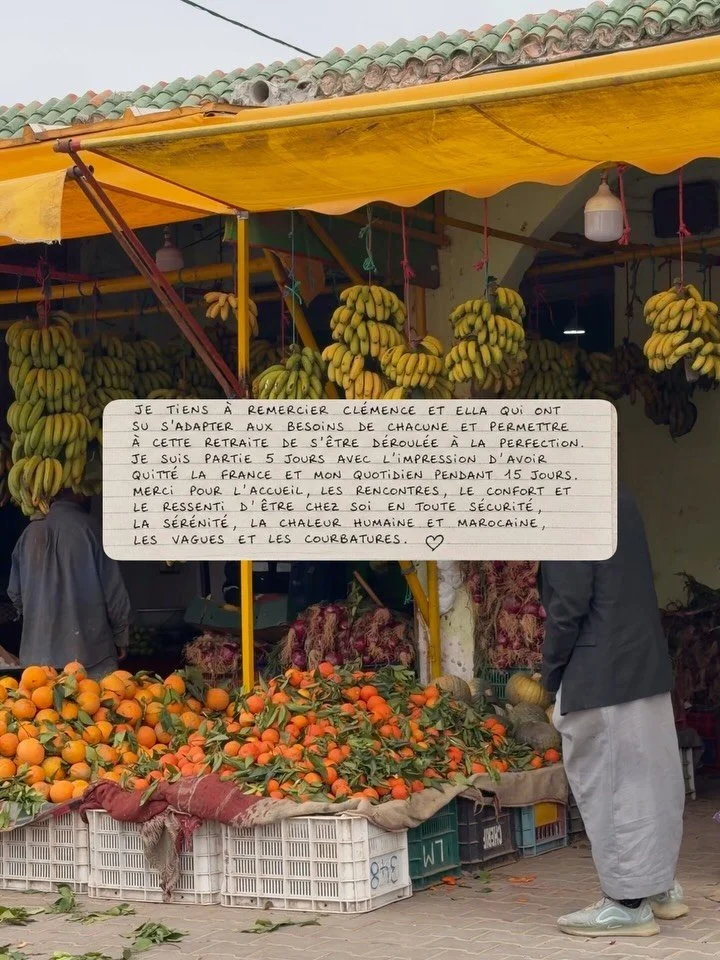 JE TIENS À REMERCIER CLÉMENCE ET ELLA QUI ONT
SU S'ADAPTER AUX BESOINS DE CHACUNE ET PERMETTRE
À CETTE RETRAITE DE S'ÊTRE DÉROULÉE À LA PERFECTION.
JE SUIS PARTIE 5 JOURS AVEC L'IMPRESSION D'AVOIR
QUITTÉ LA FRANCE ET MON QUOTIDIEN PENDANT 15 JOURS.
MERCI POUR L'ACCUEIL, LES RENCONTRES, LE CONFORT ET
LE RESSENTI D'ÊTRE CHEZ SOI EN TOUTE SÉCURITÉ,
LA SÉRÉNITÉ, LA CHALEUR HUMAINE ET MAROCAINE,
LES VAGUES ET LES COURBATURES. ♡
LM